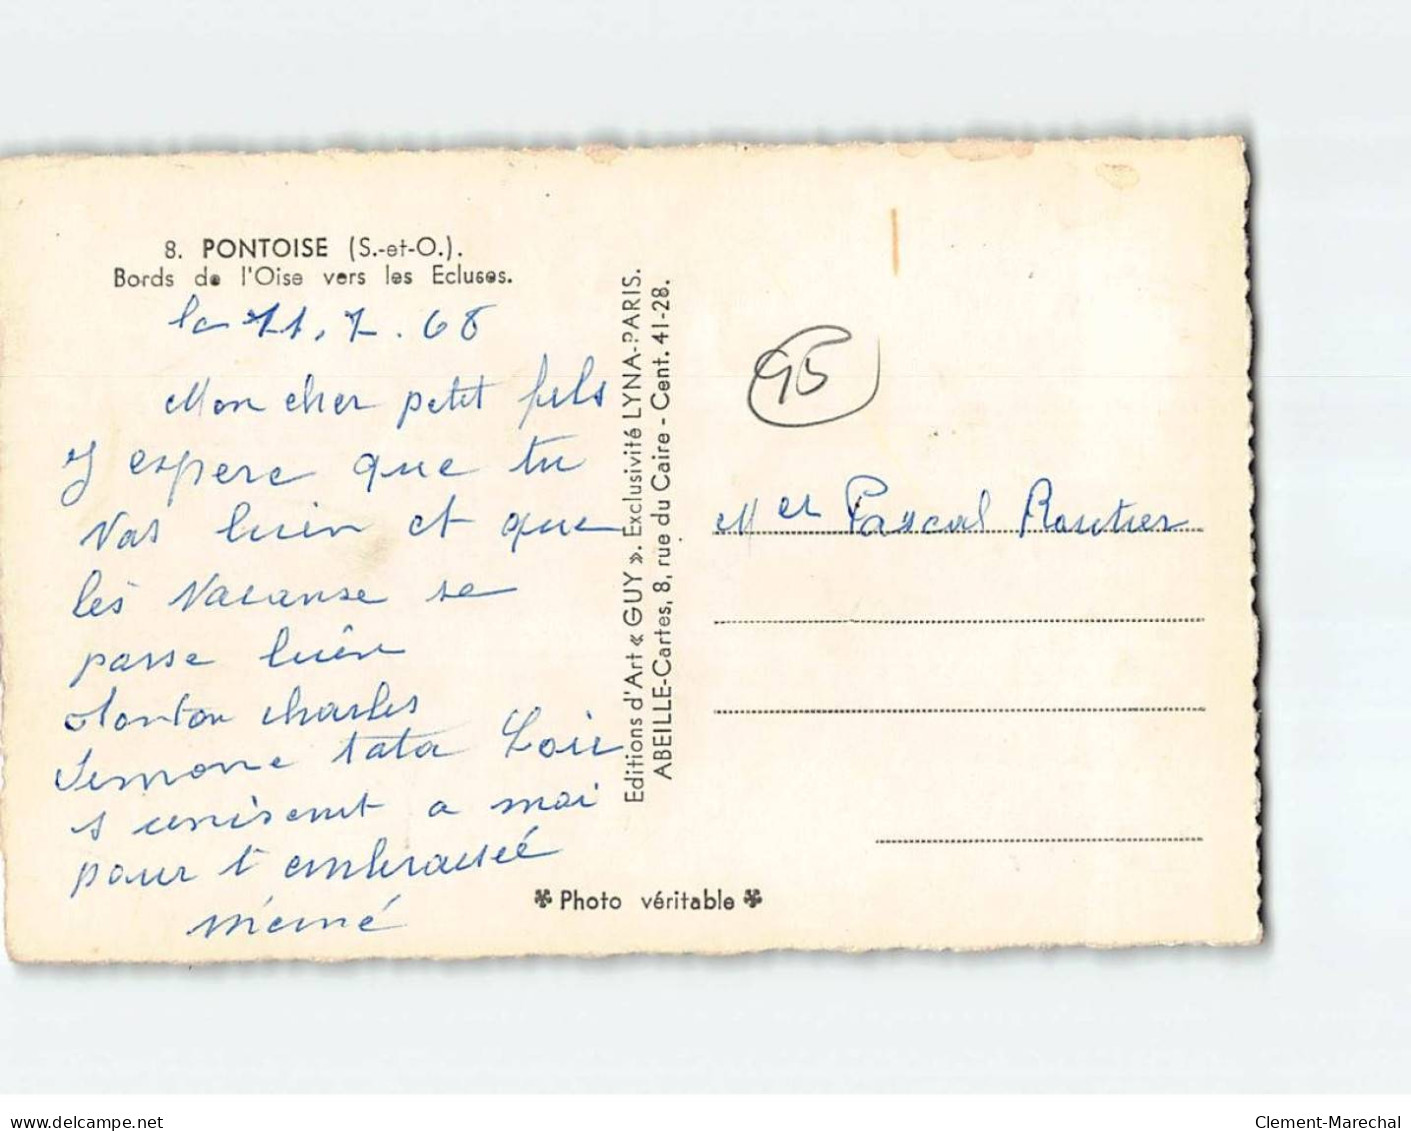 8. PONTOISE (S.-et-O.).
Bords de l'Oise vers les Ecluses.
le 11.7.68
Mon cher petit fils
J espere que tu
vas bien et que
les vacanse se
passe bien
tonton charles
Simone tata Loic
s unisent a moi
pour t embrassée
mémé
Editions d'Art « GUY ». Exclusivité LYNA-PARIS.
ABEILLE-Cartes, 8, rue du Caire - Cent. 41-28.
95
Mer Pascal Routier
Photo véritable
www.delcampe.net
Clement-Marechal